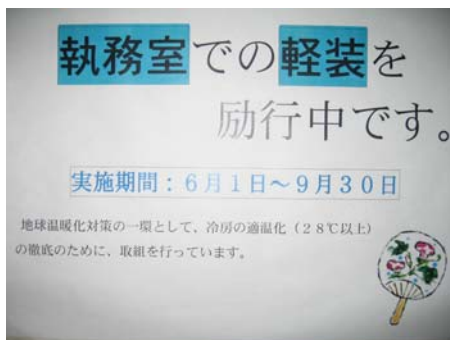 執務室での軽装を
励行中です。
実施期間：６月１日～９月３０日
地球温暖化対策の一環として、冷房の適温化（２８℃以上）
の徹底のために、取組を行っています。